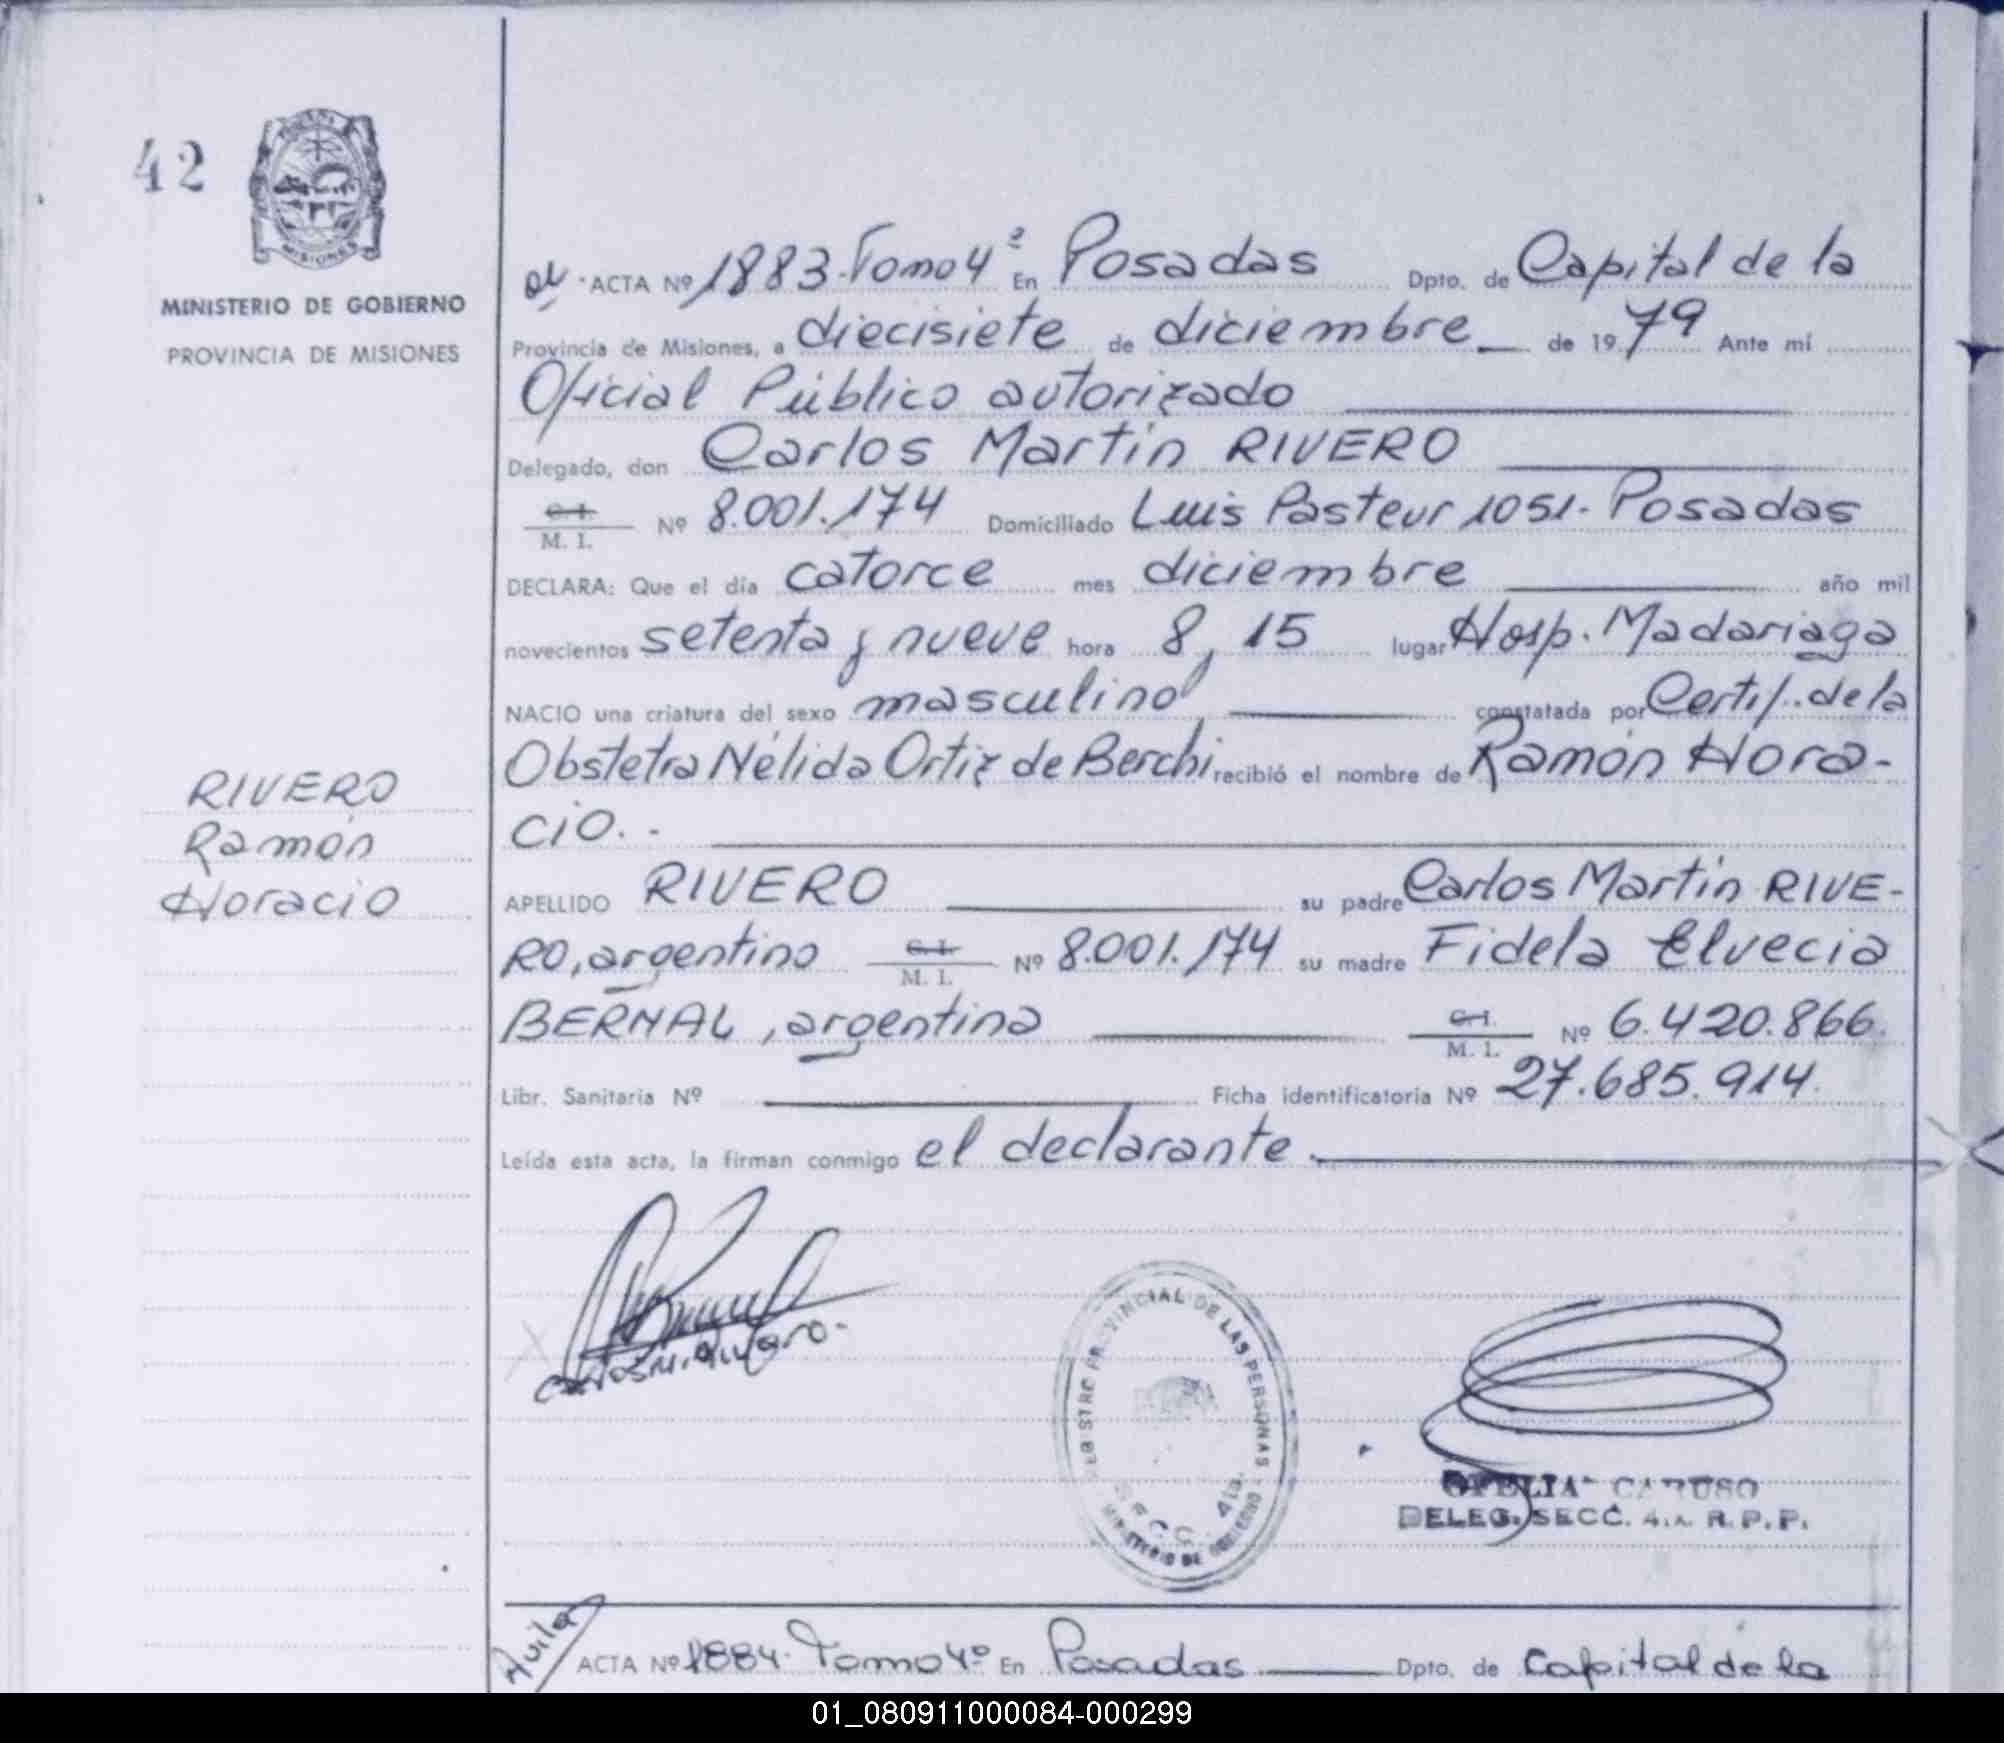 42
MISIONES
MINISTERIO DE GOBIERNO
PROVINCIA DE MISIONES
ACTA Nº 1883.Tomo 4º En Posadas Dpto. de Capital de la
Provincia de Misiones, a diecisiete de diciembre de 1979 Ante mí
Oficial Público autorizado
Delegado, don Carlos Martín RIVERO
C.I. M. I. Nº 8.001.174 Domiciliado Luis Pasteur 1051.- Posadas
DECLARA: Que el día catorce mes diciembre año mil
novecientos setenta y nueve hora 8,15 lugar Hosp. Madariaga
NACIO una criatura del sexo masculino constatada por Certif. de la
Obstetra Nélida Ortiz de Berchi recibió el nombre de Ramón Hora-
cio. -
RIVERO
Ramón
Horacio
APELLIDO RIVERO su padre Carlos Martín RIVE-
RO, argentino C.I. M. I. Nº 8.001.174 su madre Fidela Elvecia
BERNAL, argentina C.I. M. I. Nº 6.420.866
Libr. Sanitaria Nº Ficha identificatoria Nº 27.685.914
Leída esta acta, la firman conmigo el declarante.
PROVINCIAL DE LAS PERSONAS
MINISTERIO DE GOBIERNO
OFELIA CARUSO
DELEG. SECC. 4.a. R. P. P.
Avila
ACTA Nº 1884. Tomo 4º En Posadas Dpto. de Capital de la
01_080911000084-000299